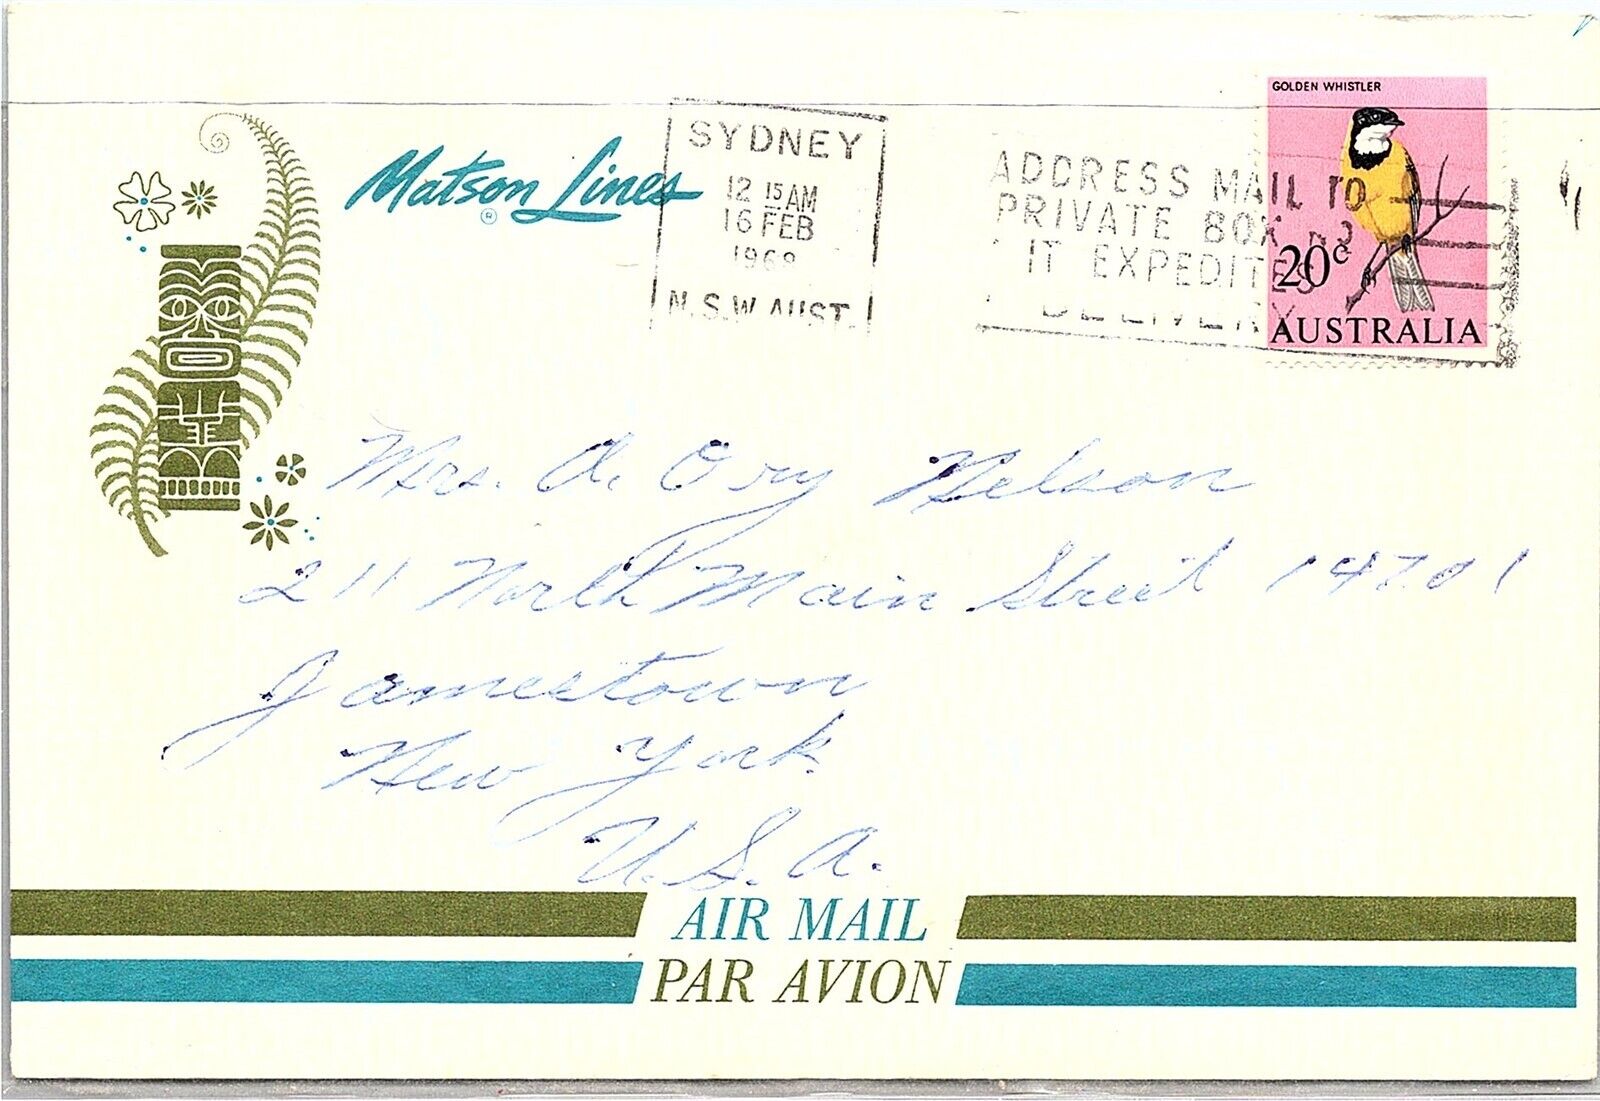 Matson Lines
®
SYDNEY
12 15 AM
16 FEB
1968
N.S.W. AUST.
ADDRESS MAIL TO
PRIVATE BOX NO
IT EXPEDITES
DELIVERY
GOLDEN WHISTLER
20c
AUSTRALIA
Mrs. A. Ory Nelson
211 North Main Street 14701
Jamestown
New York
U.S.A.
AIR MAIL
PAR AVION